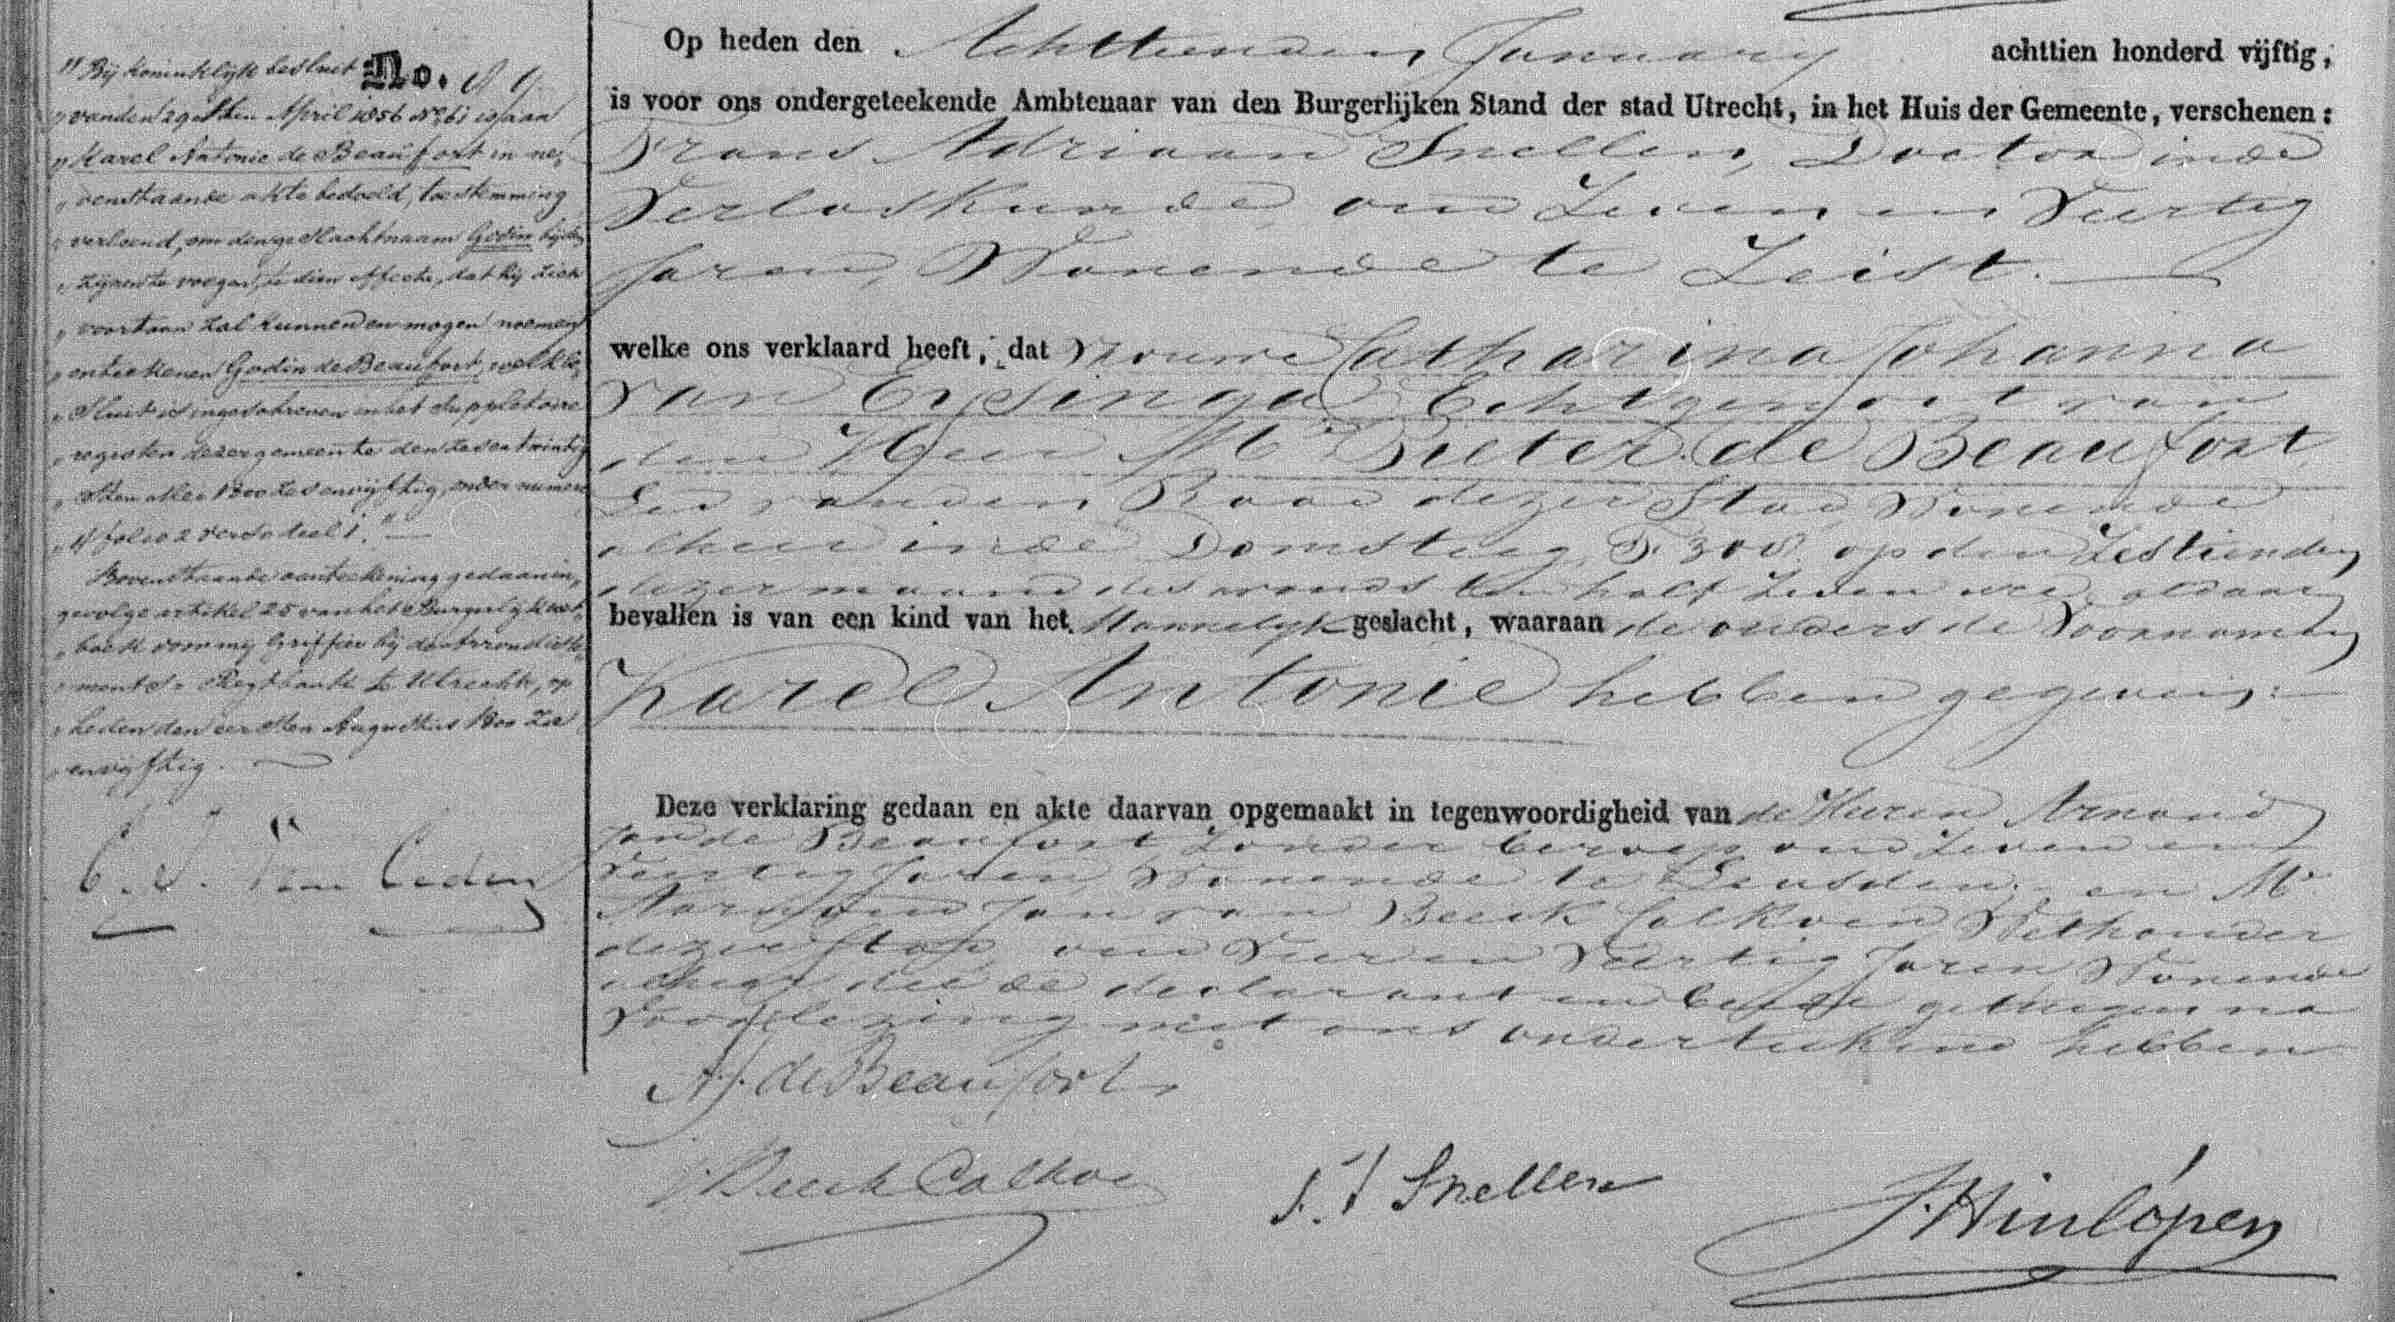 No. 89
"Bij koninklijk besluit
" van den 29sten April 1856 No. 61 is aan
" Karel Antonie de Beaufort in ne-
" venstaande akte bedoeld, toestemming
" verleend, om den geslachtnaam Godin bij den
" zijnen te voegen, te dien effecte, dat hij zich
" voortaan zal kunnen en mogen noemen
" en teekenen Godin de Beaufort, welk be-
" sluit is ingeschreven in het suppletoire
" register dezer gemeente den
" 1800 zes en vijftig, onder numero
" 4 folio 2 verso deel 1."
Bovenstaande aanteekening gedaan in-
gevolge artikel 25 van het Burgerlijk wet-
" boek door mij Griffier bij de Arrondisse-
" ments Regtbank te Utrecht, op
" heden den eersten Augustus 1800 zes
" en vijftig.
Op heden den Achttienden January achttien honderd vijftig,
is voor ons ondergeteekende Ambtenaar van den Burgerlijken Stand der stad Utrecht, in het Huis der Gemeente, verschenen:
Frans Adriaan Snellen, Doctor in de
Verloskunde oud Zeven en Veertig
Jaren, Wonende te Zeist.
welke ons verklaard heeft, dat Vrouwe Catharina Johanna
van Eysinga Echtgenoot van
den Heer Mr Pieter de Beaufort,
Lid van den Raad dezer Stad, Wonende
alhier in de Domsteeg, op den Zestienden
dezer maand des avonds ten half Zeven ure, aldaar
bevallen is van een kind van het Mannelyk geslacht, waaraan de ouders de Voornamen
Karel Antonie hebben gegeven.
Deze verklaring gedaan en akte daarvan opgemaakt in tegenwoordigheid van de Heeren Arnoud
Jan de Beaufort Zonder beroep oud Zeven en
Veertig Jaren Wonende te Leusden, en Mr
Jan van Beeck Calkoen Wethouder
dezer Stad, oud Vier en Veertig Jaren Wonende
alhier die de declarant en beide getuigen na
Voorlezing met ons onderteekend hebben
A. J. de Beaufort
v Beeck Calkoen
F. A Snellen
J. Hinlópen